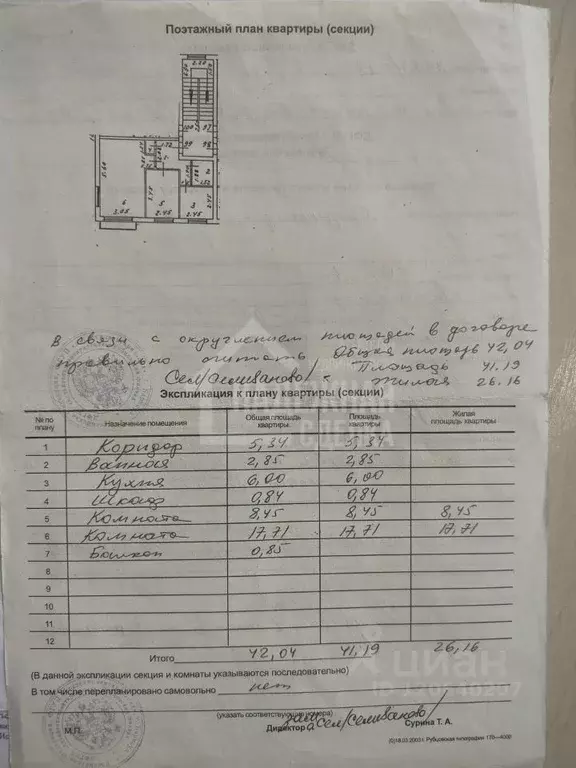 Поэтажный план квартиры (секции)
2.80
100 97
99 98
1.72
5.60
2.45
2.45
6
3.05
5
2.45
3
2.45
1.52
В связи с округлением площадей в договоре
правильно считать Общая площадь 42,04
Площадь 41.19
Жилая 26.16
Сем/Селиваново/
Экспликация к плану квартиры (секции)
№ по плану Назначение помещения Общая площадь квартиры Площадь квартиры Жилая площадь квартиры
1 Коридор 5,34 5,34
2 Ванная 2,85 2,85
3 Кухня 6,00 6,00
4 Шкаф 0,84 0,84
5 Комната 8,45 8,45 8,45
6 Комната 17,71 17,71 17,71
7 Балкон 0,85
8
9
10
11
12
Итого 42,04 41,19 26,16
(В данной экспликации секция и комнаты указываются последовательно)
В том числе перепланировано самовольно нет
(указать соответствующие номера)
М.П. Директор Сурина Т. А.
циан